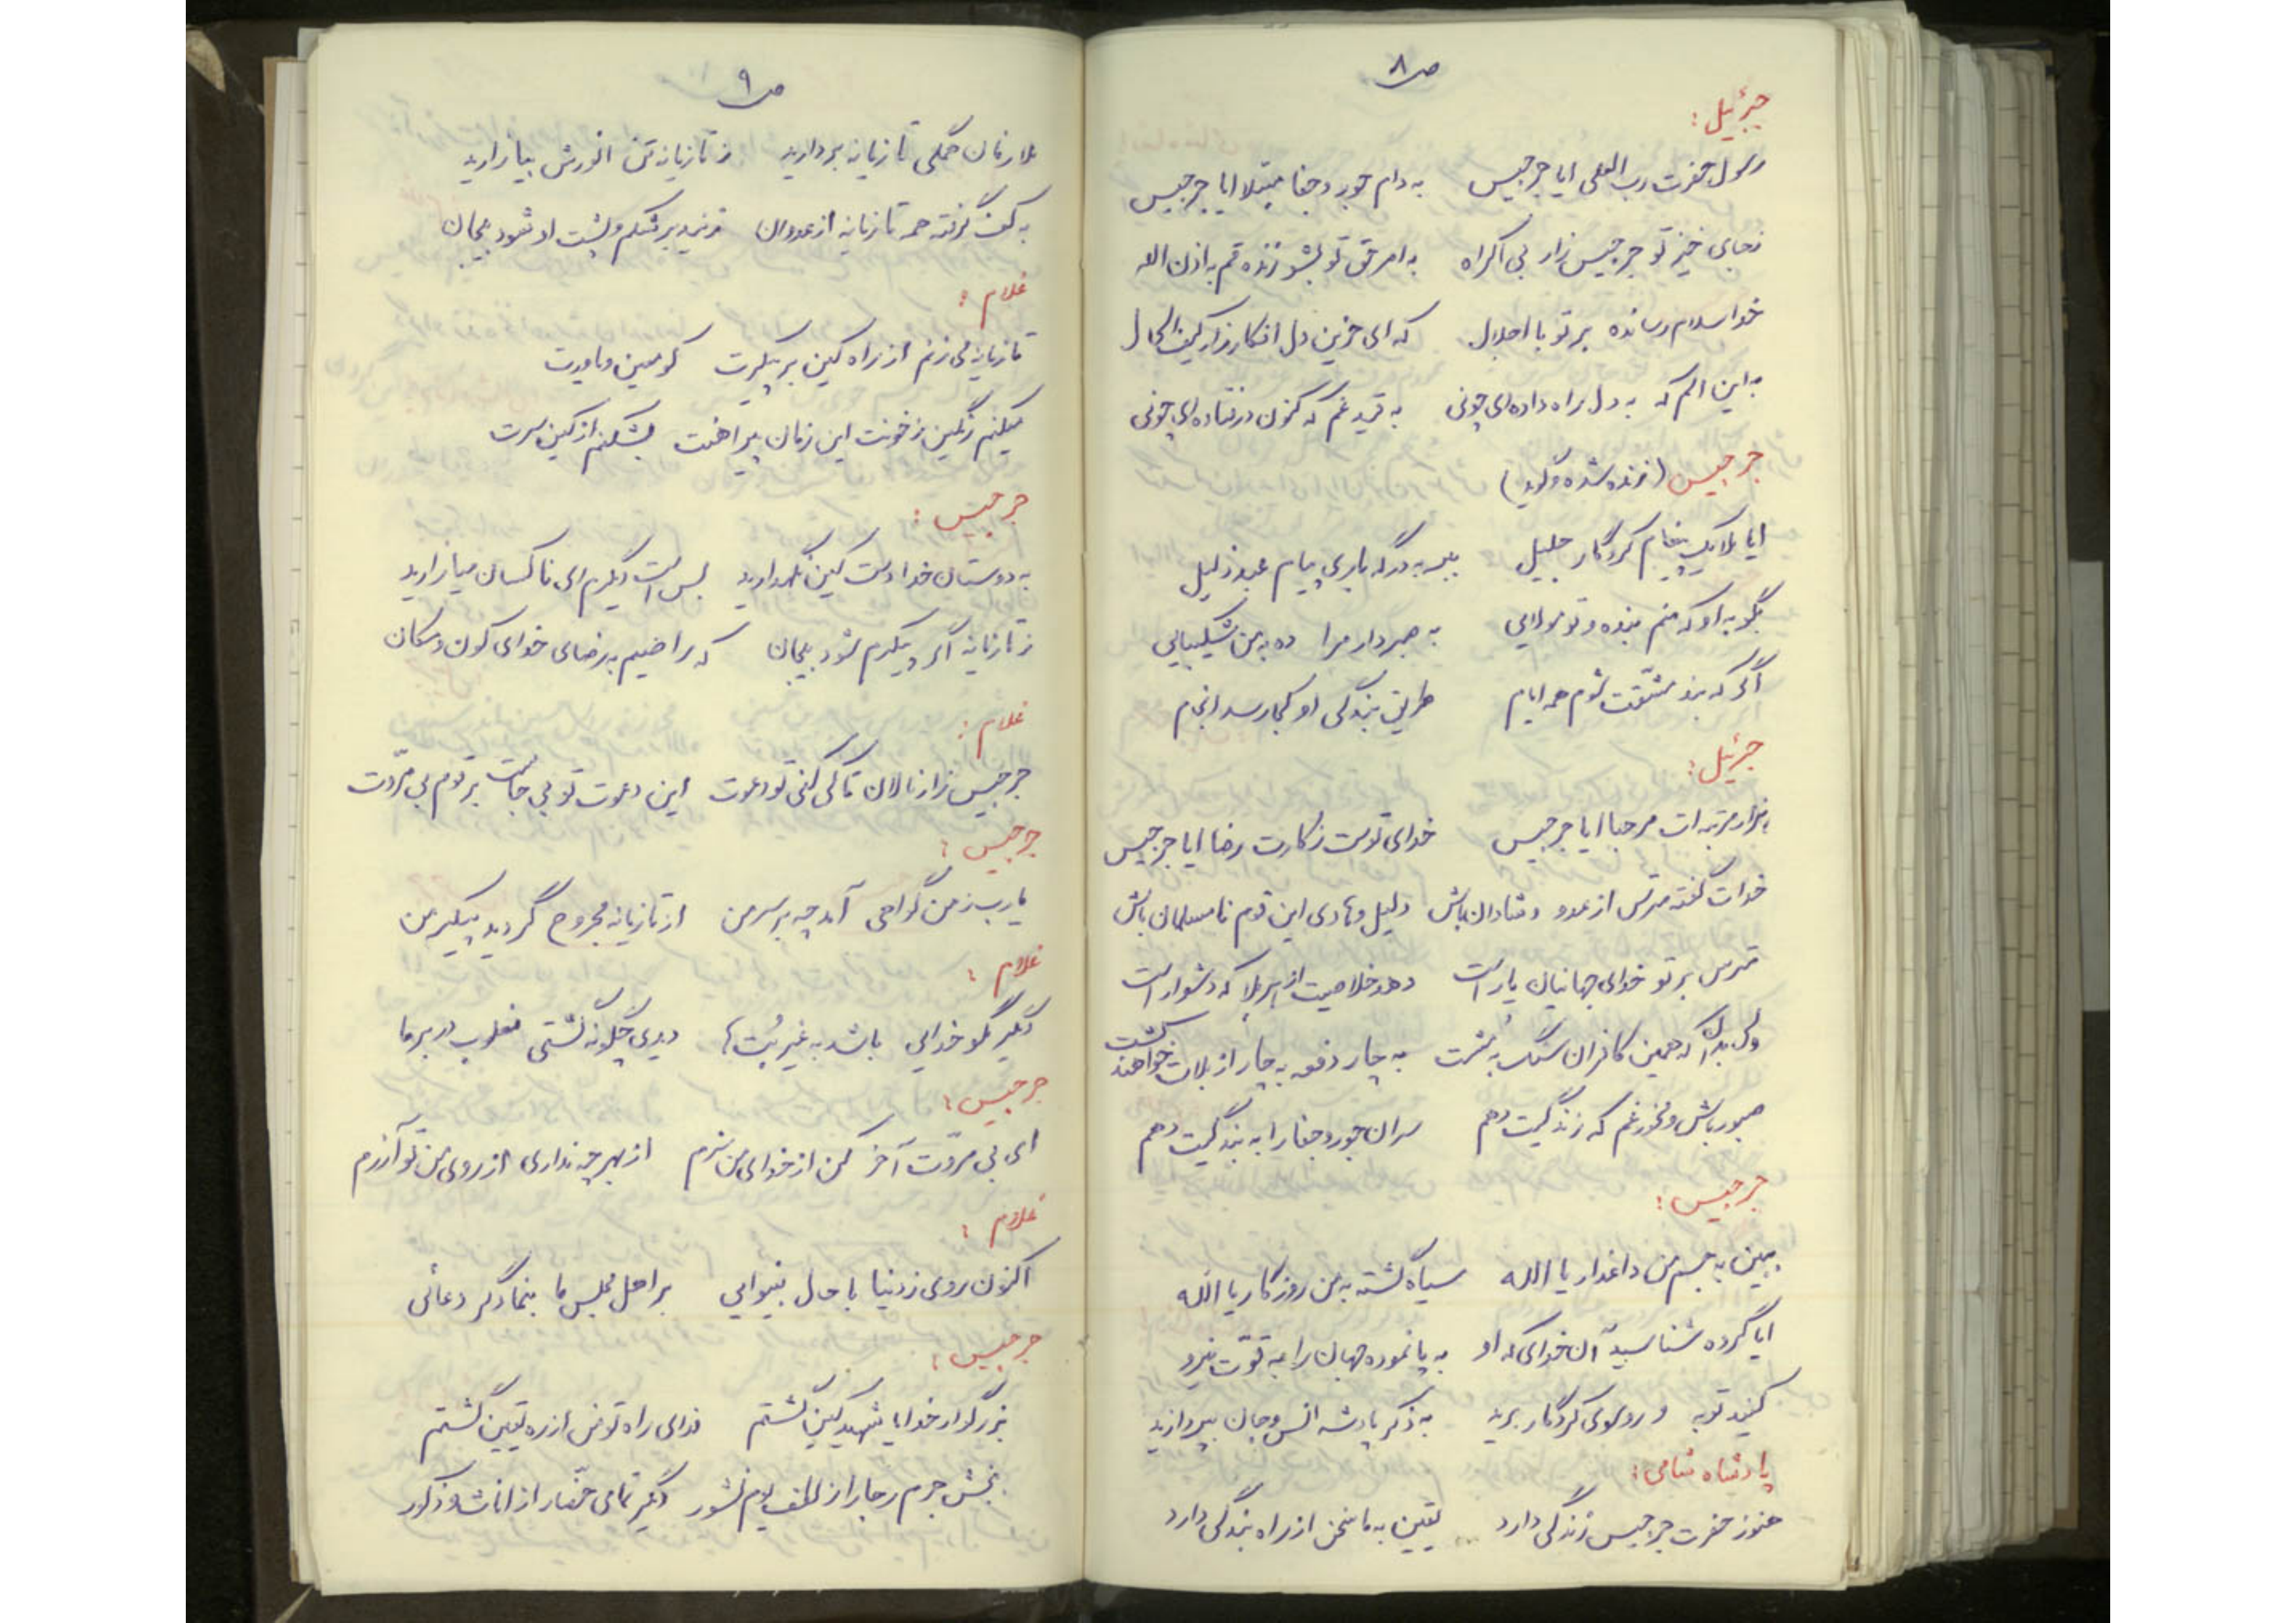 ص ۸
جبرئیل:
رسول حضرت رب العلی ایا جرجیس به دام جور و جفا مبتلا ایا جرجیس
زجای خیز تو جرجیس زار بی اکراه به امر حق تو بشو زنده قم به اذن الله
خدا سلام رسانده بر تو با اجلال که ای حزین دل افکار زار کیف الحال
به این الم که به دل راه داده‌ای چونی به قید غم که کنون درفتاده‌ای چونی
جرجیس (زنده شده و گوید)
ایا ملایک پیغام کردگار جلیل ببر به درگه باری پیام عبد ذلیل
بگو به او که منم بنده و تو مولایی به صبر دار مرا ده به من شکیبایی
اگر که بند مشقت شوم همه ایام طریق بندگی او کجا رسد انجام
جبرئیل:
هزار مرتبه ات مرحبا ایا جرجیس خدای توست زکارت رضا ایا جرجیس
خدات گفته مترس از عدو و شادان باش دلیل و هادی این قوم نامسلمان باش
مترس بر تو خدای جهانیان یار است دهد خلاصیت از هر بلا که دشوار است
ولی بدان که همین کافران سنگ به مشت به چار دفعه به چار از بلات خواهند کشت
صبور باش و مخور غم که زندگیت دهم سران جور و جفا را به بندگیت دهم
جرجیس:
ببین به جسم من داغدار یا الله سیاه گشته به من روزگار یا الله
ایا گروه شناسید آن خدای که او به پا نموده جهان را به قوّت نیرو
کنید توبه و رو سوی کردگار برید به ذکر پادشه انس و جان بپردازید
پادشاه شامی:
هنوز حضرت جرجیس زندگی دارد یقین به ما سخن از راه بندگی دارد
ص ۹
ملازمان همگی تازیانه بردارید ز تازیانه تن انورش بیازارید
به کف گرفته همه تازیانه از عدوان زنید بر شکم و پشت او شود بیجان
غلام:
تازیانه می زنم از راه کین بر پیکرت کو معین و یاورت
میکنم رنگین ز خونت این زمان پیراهنت بشکنم از کین سرت
جرجیس:
به دوستان خدا دست کین نگهدارید بس است دیگرم ای ناکسان میازارید
ز تازیانه اگر پیکرم شود بیجان که راضیم به رضای خدای کون و مکان
غلام:
جرجیس زار نالان تا کی کنی تو دعوت این دعوت تو بی جاست بر قوم بی مروّت
جرجیس:
یارب ز من گواهی آمد چه بر سر من از تازیانه مجروح گردید پیکر من
غلام:
دیگر مگو خدایی باشد به غیر بُت‌ها دیدی چگونه گشتی مغلوب در بر ما
جرجیس:
ای بی مروّت آخر کن از خدای من شرم از بهر چه نداری از روی من تو آزرم
غلام:
اکنون روی ز دنیا با حال بینوایی بر اهل مجلس ما بنما دگر دعائی
جرجیس:
بزرگوار خدایا شهید کین گشتم فدای راه تو من از ره یقین گشتم
ببخش جرم رجا را ز لطف یوم نشور دیگر تمامی حضّار از اناث و ذکور